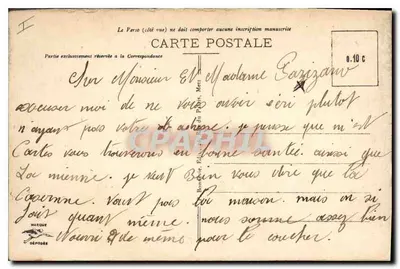 I
Le Verso (côté vue) ne doit comporter aucune inscription manuscrite
CARTE POSTALE
Partie exclusivement réservée à la Correspondance
0.10 c
Cher Monsieur Et Madame
excuser moi de ne vous avoir seri plutot
n'ayant pas votre adresse. je pense que m'est
Cartes vous trouverons en bonne santée ainsi que
La mienne. je veut Bien vous dire que la
Caserne. vaut pas la maison. mais on si
fait quant même. nous somme assez bien
Nourri & de même pour le coucher.
MARQUE
DÉPOSÉE
CPAPHIL